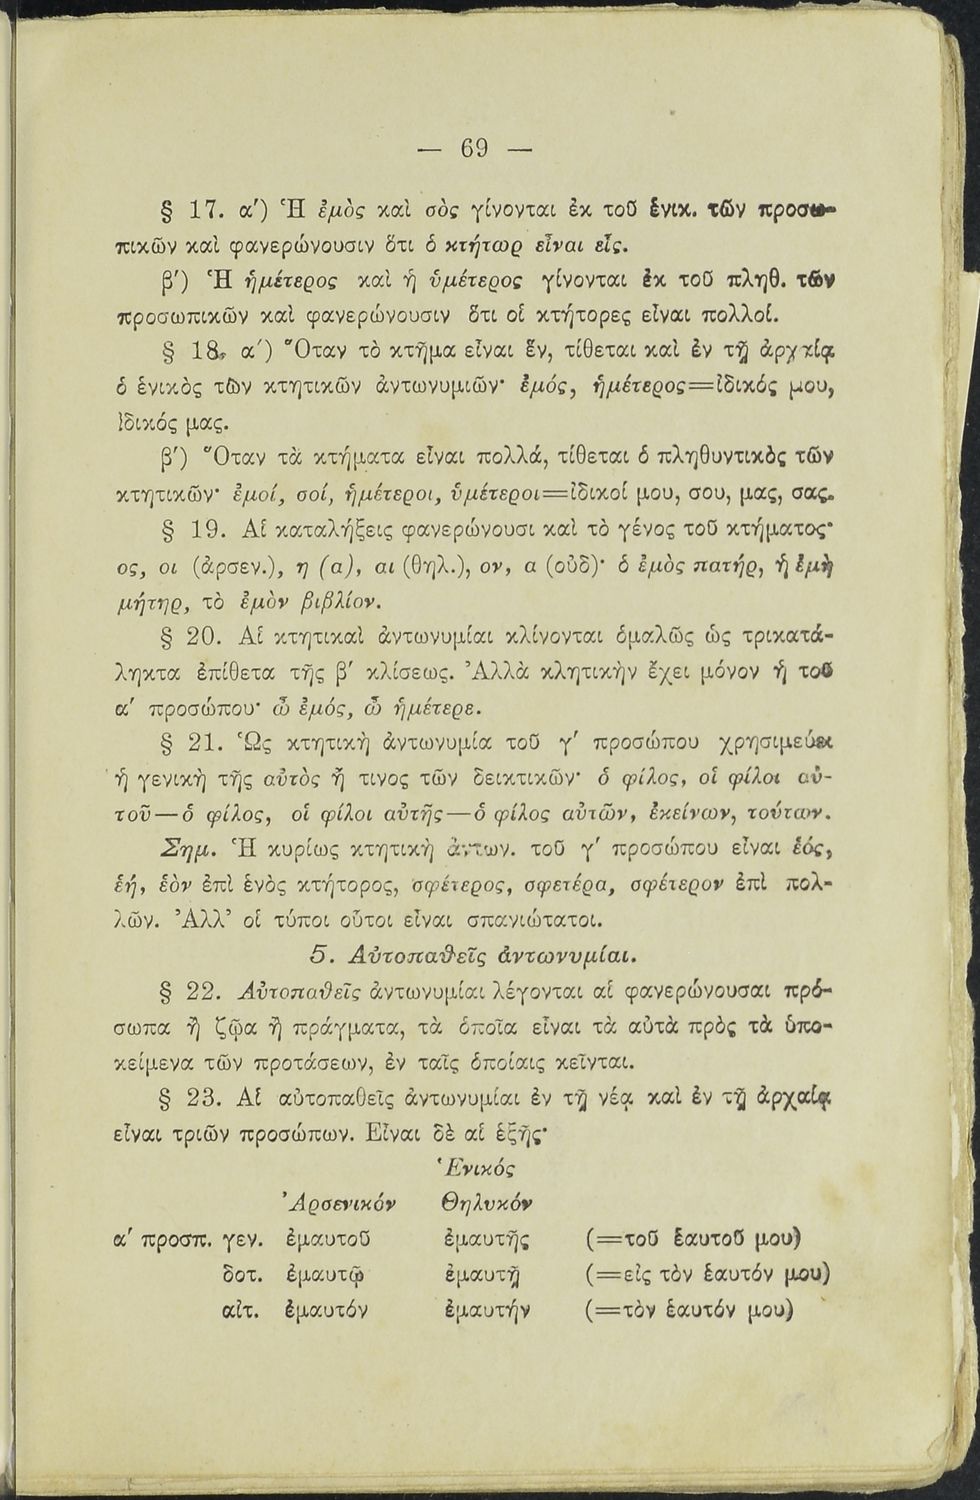 — 69 —
§ 17. α') Ἡ ἐμὸς καὶ σὸς γίνονται ἐκ τοῦ ἑνικ. τῶν προσω-
πικῶν καὶ φανερώνουσιν ὅτι ὁ κτήτωρ εἶναι εἷς.
β') Ἡ ἡμέτερος καὶ ἡ ὑμέτερος γίνονται ἐκ τοῦ πληθ. τῶν
προσωπικῶν καὶ φανερώνουσιν ὅτι οἱ κτήτορες εἶναι πολλοί.
§ 18. α') Ὅταν τὸ κτῆμα εἶναι ἕν, τίθεται καὶ ἐν τῇ ἀρχαίᾳ
ὁ ἑνικὸς τῶν κτητικῶν ἀντωνυμιῶν· ἐμός, ἡμέτερος=ἰδικός μου,
ἰδικός μας.
β') Ὅταν τὰ κτήματα εἶναι πολλά, τίθεται ὁ πληθυντικὸς τῶν
κτητικῶν· ἐμοί, σοί, ἡμέτεροι, ὑμέτεροι=ἰδικοί μου, σου, μας, σας.
§ 19. Αἱ καταλήξεις φανερώνουσι καὶ τὸ γένος τοῦ κτήματος·
ος, οι (ἀρσεν.), η (α), αι (θηλ.), ον, α (οὐδ)· ὁ ἐμὸς πατήρ, ἡ ἐμὴ
μήτηρ, τὸ ἐμὸν βιβλίον.
§ 20. Αἱ κτητικαὶ ἀντωνυμίαι κλίνονται ὁμαλῶς ὡς τρικατά-
ληκτα ἐπίθετα τῆς β' κλίσεως. Ἀλλὰ κλητικὴν ἔχει μόνον ἡ τοῦ
α' προσώπου· ὦ ἐμός, ὦ ἡμέτερε.
§ 21. Ὡς κτητικὴ ἀντωνυμία τοῦ γ' προσώπου χρησιμεύει
ἡ γενικὴ τῆς αὐτὸς ἤ τινος τῶν δεικτικῶν· ὁ φίλος, οἱ φίλοι αὐ-
τοῦ—ὁ φίλος, οἱ φίλοι αὐτῆς—ὁ φίλος αὐτῶν, ἐκείνων, τούτων.
Σημ. Ἡ κυρίως κτητικὴ ἀντων. τοῦ γ' προσώπου εἶναι ἑός,
ἑή, ἑὸν ἐπὶ ἑνὸς κτήτορος, σφέτερος, σφετέρα, σφέτερον ἐπὶ πολ-
λῶν. Ἀλλ' οἱ τύποι οὗτοι εἶναι σπανιώτατοι.
5. Αὐτοπαθεῖς ἀντωνυμίαι.
§ 22. Αὐτοπαθεῖς ἀντωνυμίαι λέγονται αἱ φανερώνουσαι πρό-
σωπα ἢ ζῷα ἢ πράγματα, τὰ ὁποῖα εἶναι τὰ αὐτὰ πρὸς τὰ ὑπο-
κείμενα τῶν προτάσεων, ἐν ταῖς ὁποίαις κεῖνται.
§ 23. Αἱ αὐτοπαθεῖς ἀντωνυμίαι ἐν τῇ νέᾳ καὶ ἐν τῇ ἀρχαίᾳ
εἶναι τριῶν προσώπων. Εἶναι δὲ αἱ ἑξῆς·
Ἑνικός
Ἀρσενικόν Θηλυκόν
α' προσπ. γεν. ἐμαυτοῦ ἐμαυτῆς (=τοῦ ἑαυτοῦ μου)
δοτ. ἐμαυτῷ ἐμαυτῇ (=εἰς τὸν ἑαυτόν μου)
αἰτ. ἐμαυτόν ἐμαυτήν (=τὸν ἑαυτόν μου)